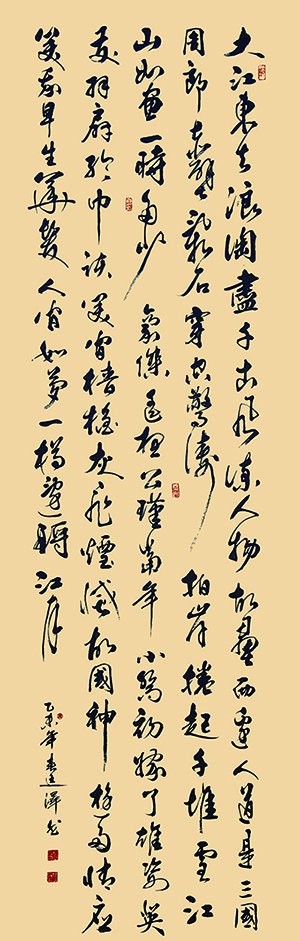 大江東去浪淘盡千古風流人物故壘西邊人道是三國
周郎赤壁亂石穿空驚濤拍岸捲起千堆雪江
山如畫一時多少豪傑遙想公瑾當年小喬初嫁了雄姿英
發羽扇綸巾談笑間檣櫓灰飛煙滅故國神遊多情應
笑我早生華髮人間如夢一樽還酹江月
乙未年春